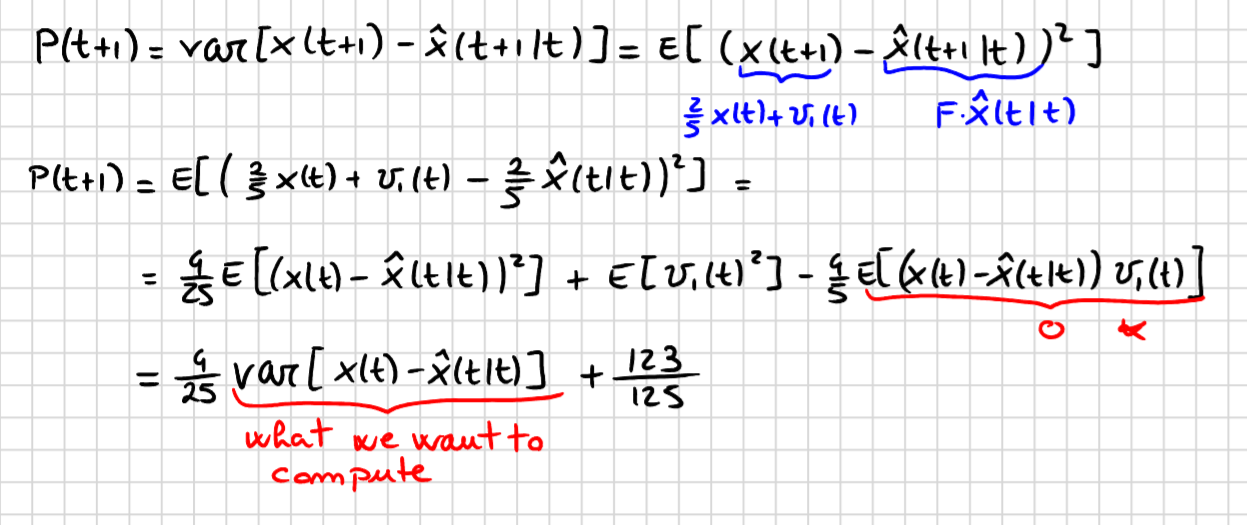 P(t+1) = var[x(t+1) - x̂(t+1|t)] = E[(x(t+1) - x̂(t+1|t))²]
2/5 x(t) + v₁(t) F·x̂(t|t)
P(t+1) = E[(2/5 x(t) + v₁(t) - 2/5 x̂(t|t))²] =
= 4/25 E[(x(t) - x̂(t|t))²] + E[v₁(t)²] - 4/5 E[(x(t) - x̂(t|t)) v₁(t)]
0 *
= 4/25 var[x(t) - x̂(t|t)] + 123/125
what we want to
compute